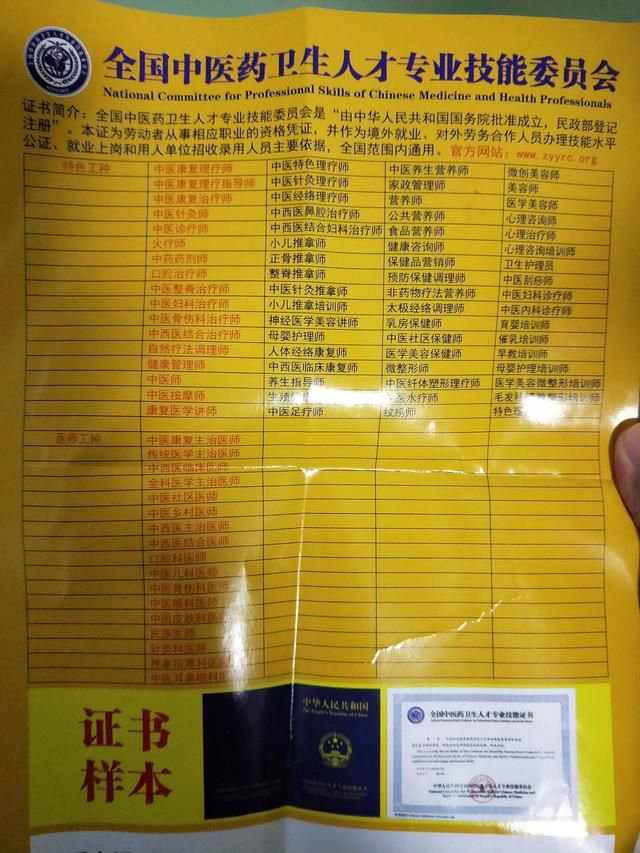 全国中医药卫生人才专业技能委员会
National Committee for Professional Skills of Chinese Medicine and Health Professionals
证书简介：全国中医药卫生人才专业技能委员会是“由中华人民共和国国务院批准成立，民政部登记
注册”。本证为劳动者从事相应职业的资格凭证，并作为境外就业、对外劳务合作人员办理技能水平
公证、就业上岗和用人单位招收录用人员主要依据，全国范围内通用。官方网站：www.zyyrc.org
特色工种 中医康复理疗师 中医特色理疗师 中医养生营养师 微创美容师
中医康复理疗指导师 中医针灸理疗师 家政管理师 美容师
中医康复治疗师 中医经络理疗师 营养师 医学美容师
中医针灸师 中西医鼻腔治疗师 公共营养师 心理咨询师
中医诊疗师 中西医结合妇科治疗师 食品营养师 心理治疗师
火疗师 小儿推拿师 健康咨询师 心理咨询培训师
中药药剂师 正骨推拿师 保健品营销师 卫生护理员
口腔治疗师 整脊推拿师 预防保健调理师 中医刮痧师
中医整脊治疗师 中医针灸推拿师 非药物疗法营养师 中医妇科诊疗师
中医妇科治疗师 小儿推拿培训师 太极经络调理师 中医内科诊疗师
中医骨伤科治疗师 神经医学美容讲师 乳房保健师 育婴培训师
中西医结合治疗师 母婴护理师 中医社区保健师 催乳培训师
自然疗法调理师 人体经络康复师 医学美容保健师 早教培训师
健康管理师 中西医临床康复师 微整形师 母婴护理培训师
中医师 养生指导师 中医纤体塑形理疗师 医学美容微整形培训师
中医按摩师 生殖 医水疗师 毛发 微整形培训师
康复医学讲师 中医足疗师 纹绣师 特色理
医师工种 中医康复主治医师
传统医学主治医师
中西医临床医师
全科医学主治医师
中医社区医师
中医乡村医师
中西医主治医师
中西医结合医师
口腔科医师
中医儿科医师
中医骨伤科医师
中医眼科医师
中医皮肤科医师
民族医师
针灸科医师
推拿按摩科医师
中医耳鼻喉科医师
证书
样本
中华人民共和国
The People's Republic of China
全国中医药卫生人才专业技能证书